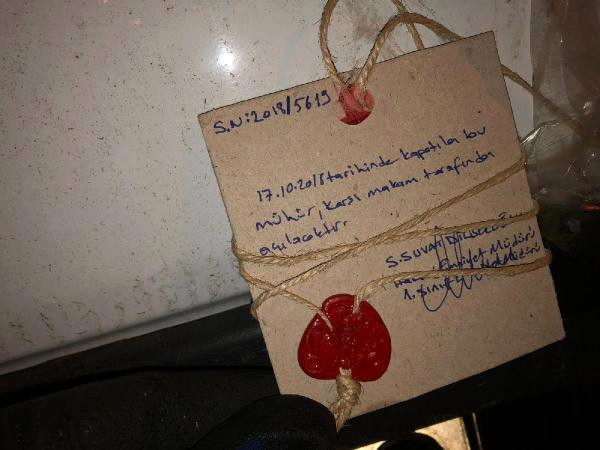 S.N:2018/5619
17.10.2018 tarihinde kapatıla bu
mühür, karşı makam tarafında
açılacaktır.
S.SUVAT
Emniyet Müdürü
1. Sınıf Müdürü